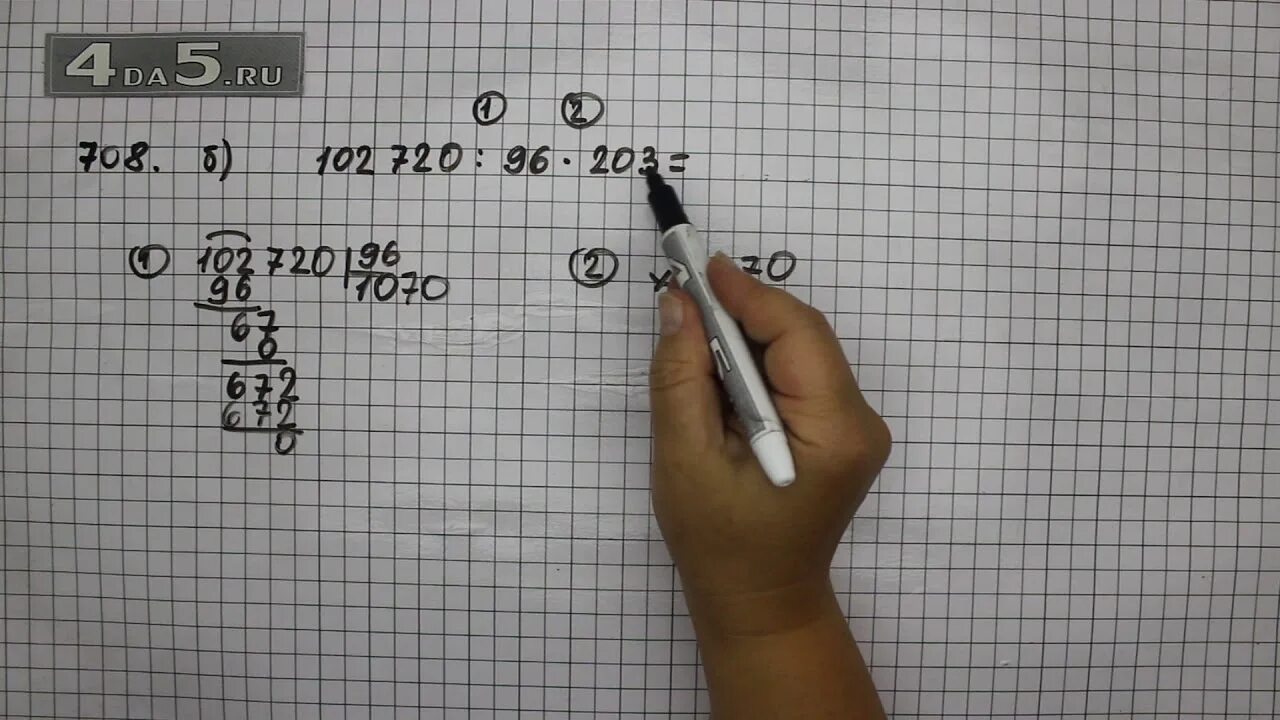 4DA5.RU
① ②
708. б) 102 720 : 96 · 203 =
① 102 720 | 96
96 1070
67
0
672
672
0
② × 70